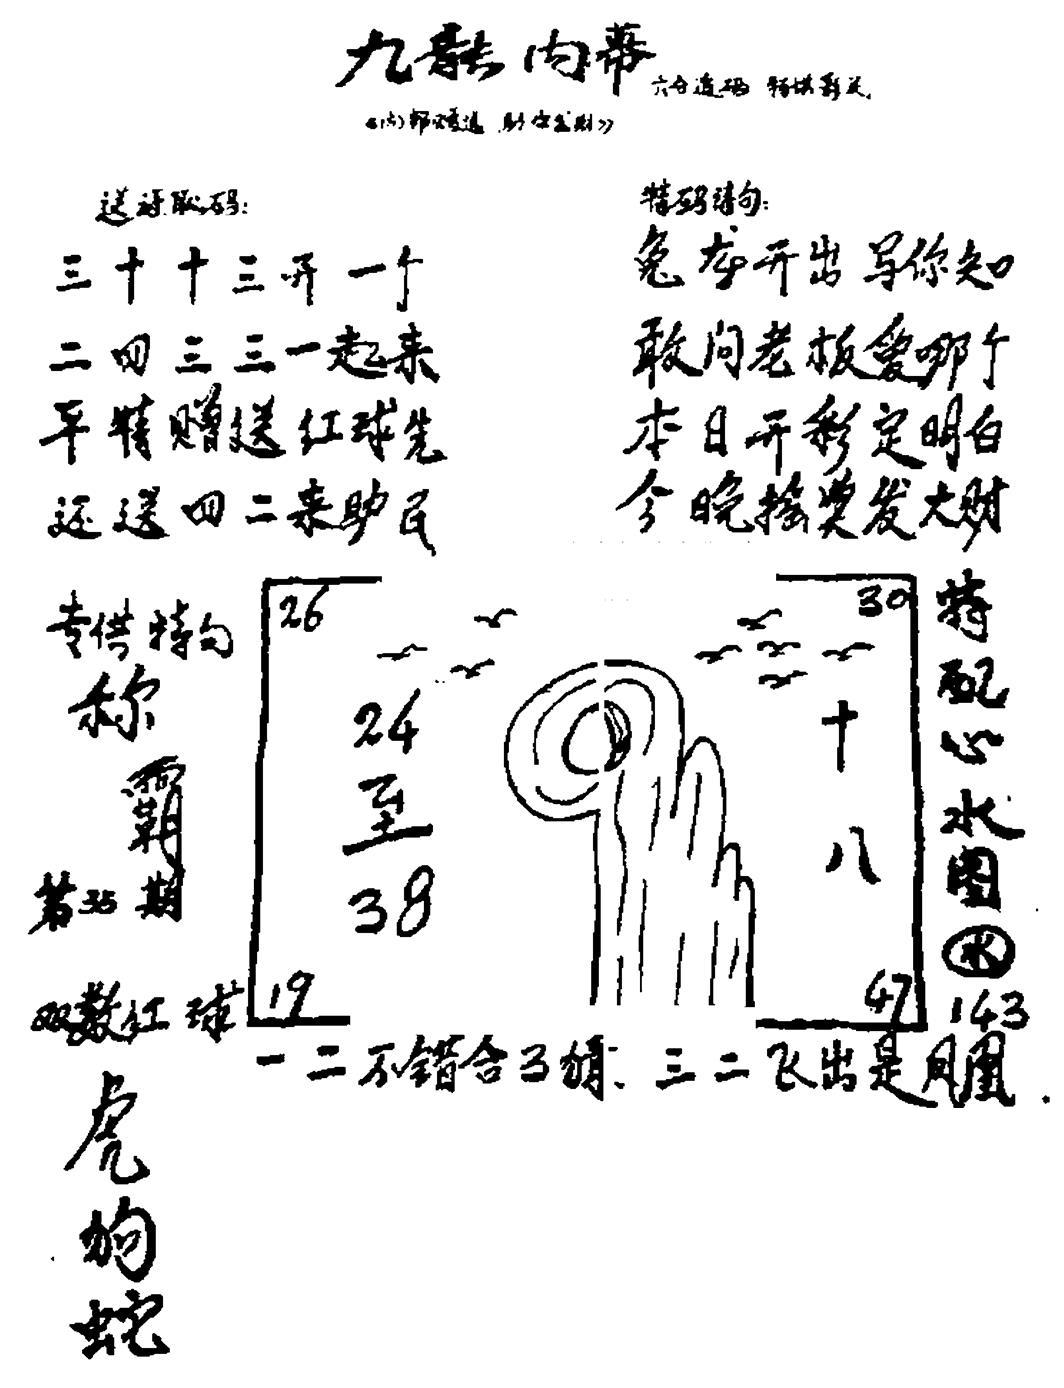 九龍内幕
六分
送 码:
三十十三开一个
二四三三一起来
平特赠送红球先
还送四二来助民
特码诗句:
兔龙开出写你知
敢问老板爱哪个
本日开彩定明白
今晚搖奖发大财
专供特句
称
霸
第35期
双数红球
虎
狗
蛇
26
30
24
至
38
十
八
19
47
特
配
心
水
图
水
143
一二不错含
三二飞出是凤凰.